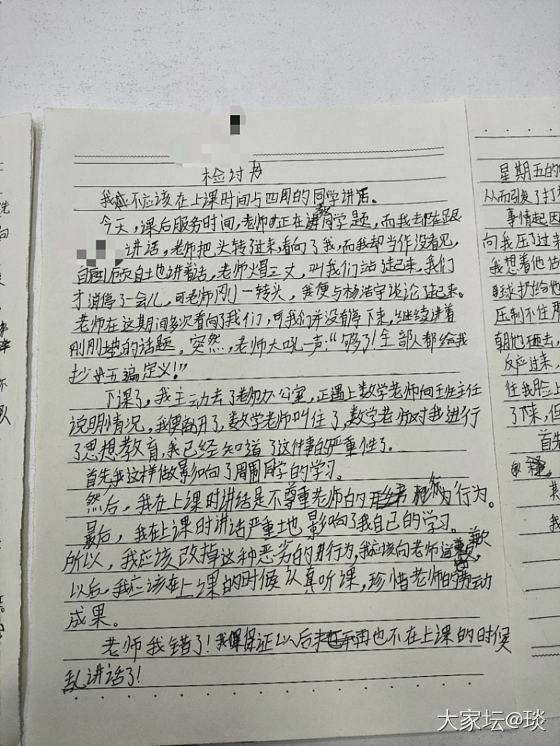 检讨书
我不应该在上课时间与四周的同学讲话。
今天，课后服务时间，老师正在讲同学题，而我却在跟
讲话，老师把头转过来，看向了我，而我却当作没看见，
自顾自地讲着话，老师火冒三丈，叫我们站起来，我们
才消停了会儿，可老师刚一转头，我便与杨浩宇谈论了起来。
老师在这期间多次看向了我们，可我们并没有停下来，继续讲着
刚刚的话题。突然，老师大吼一声："够了！全部人都给我
抄五遍定义！"
下课了，我主动去了老师办公室，正遇上数学老师向班主任
说明情况，我便离开了，数学老师叫住了，数学老师对我进行
了思想教育，我已经知道了这件事的严重性了。
首先我这样做影响了周围同学的学习。
然后，我在上课时讲话是不尊重老师的行为。
最后，我在上课时讲话严重地影响了我自己的学习。
所以，我应该改掉这种恶劣的行为，我应该向老师道歉，
以后，我应该在上课的时候认真听课，珍惜老师的劳动
成果。
老师我错了！我保证以后再也不在上课的时候
乱讲话了！
星期五的
从而引发了打
事情起因
向我压了过来
我想着他估
球扔给他
压制不住
朝他砸去，
反应过来，
在我脸上
了下来，但
首先
大家坛@琰